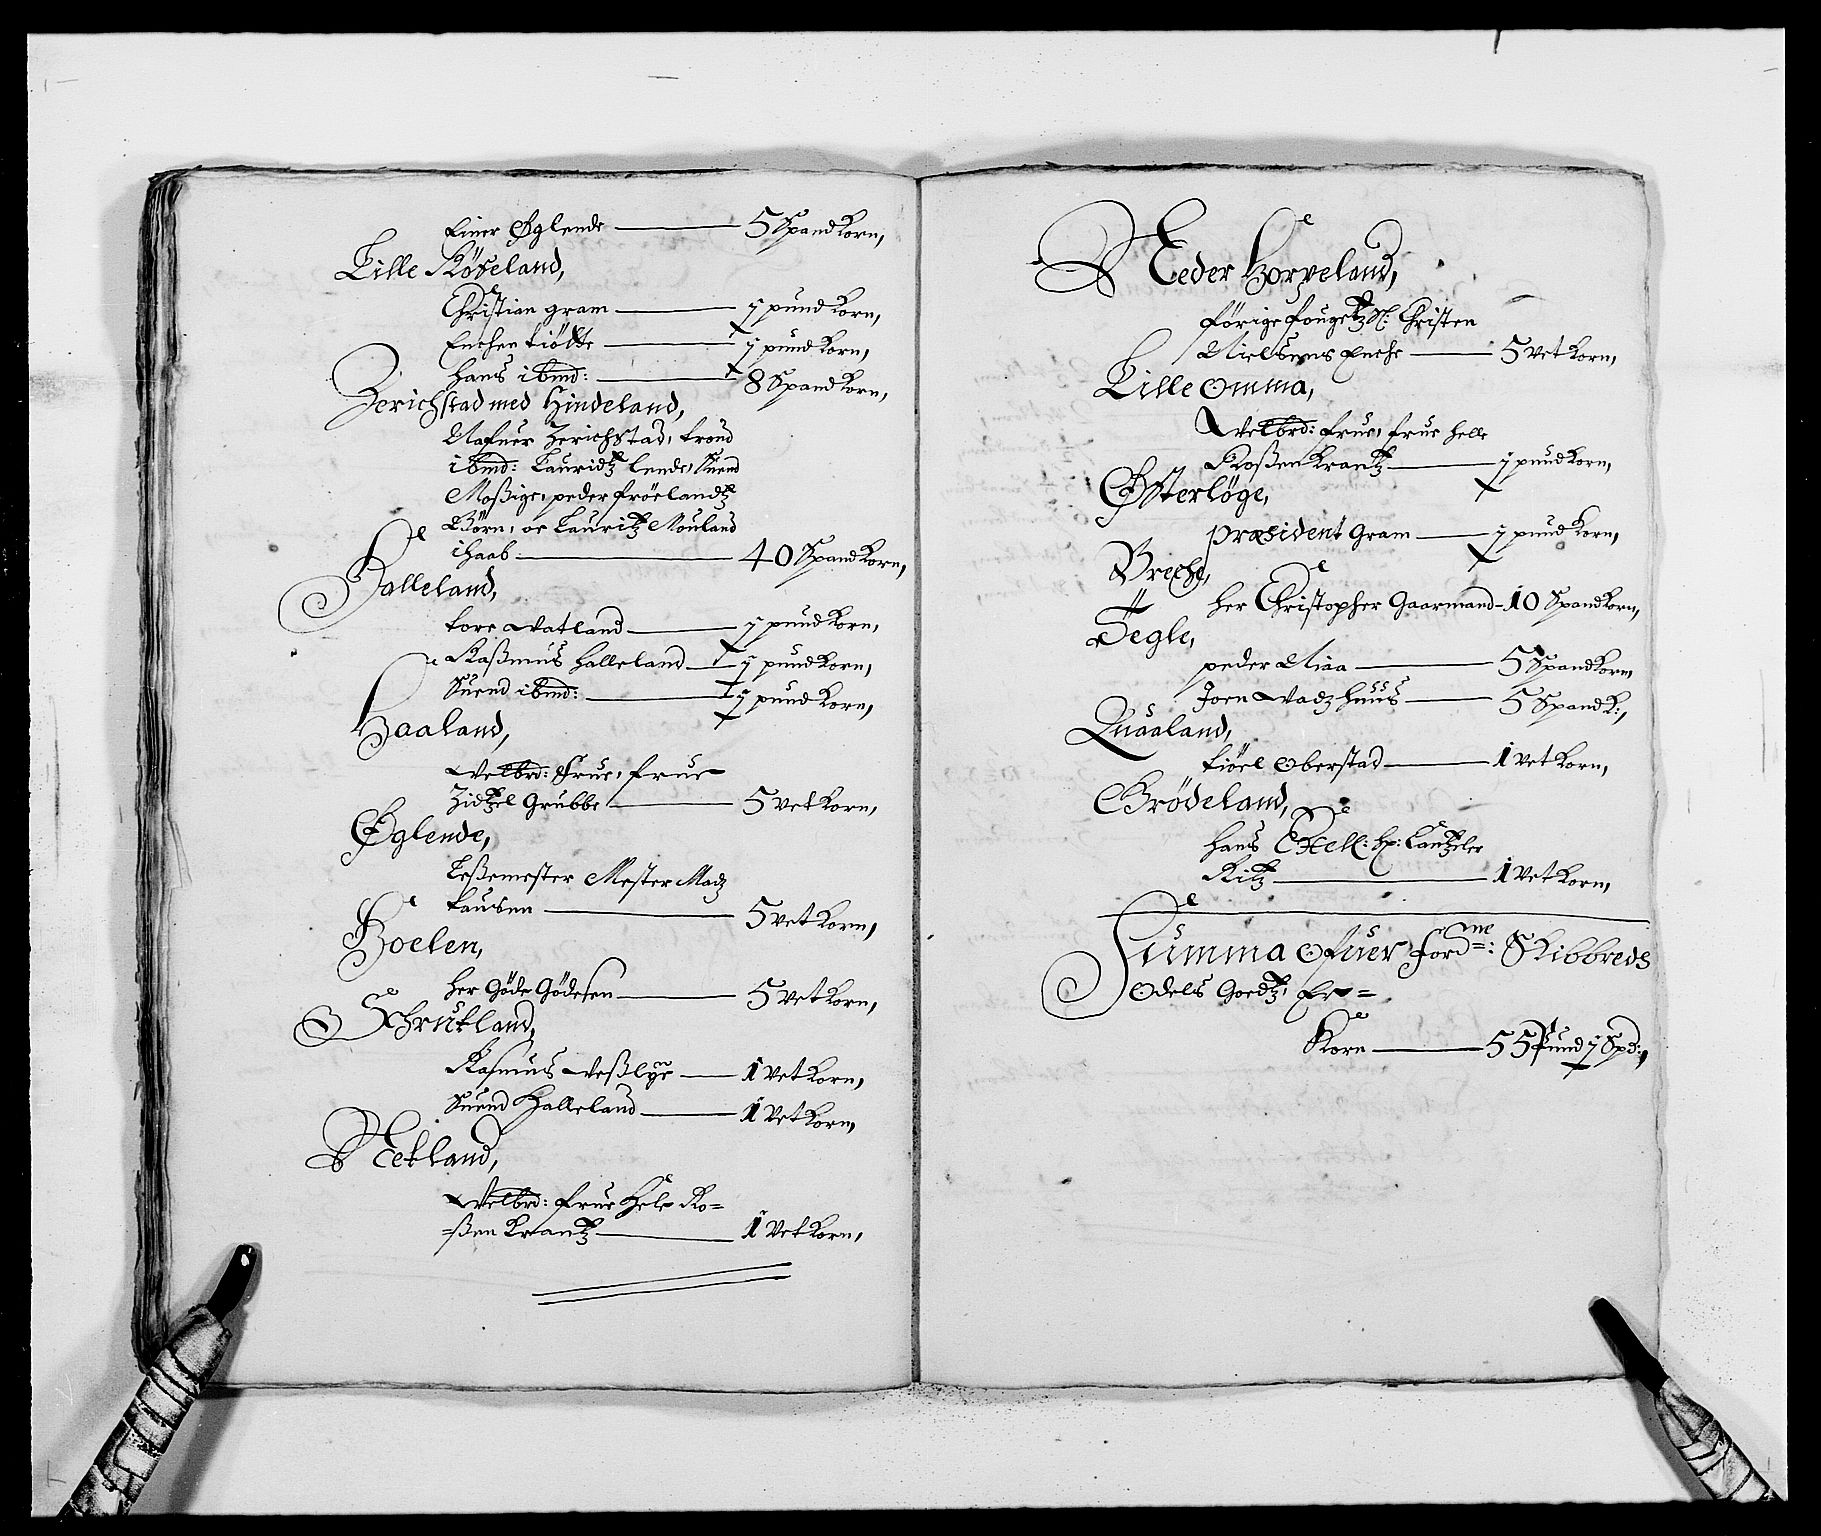 Einer Øglende — 5 Spand Korn,
Lille Røseland,
Christian gram — j pund Korn,
Encken Kiølte — j pund Korn,
hans ibmd: — 8 Spand Korn,
Zerichstad med Hindeland,
Rafner Zerichstad, trond
ibmd: Lauridtz lende, Suend
Moßige, peder frøelandtz
Børn, oc Lauritz Mouland
ihaab — 40 Spand Korn,
Halleland,
tore Watland — j pund Korn,
Raßmus Halleland — j pund Korn,
Suend ibmd: — j pund Korn,
Haaland,
Welbrd: Frue, frue
Zidtzel Grubbe — 5 Vet Korn,
Øglende,
Leßemester Mester Madz
tausen — 5 Vet Korn,
Hoelen,
her Gøde Gødesen — 5 Vet Korn,
Schrutland,
Rasmus Weßlye — 1 Vet Korn,
Suend Halleland — 1 Vet Korn,
Netland,
Welbrd: frue Hele Ro=
=ßen Krantz — 1 Vet Korn,
Neder Horveland,
forige fougetz Sl: Christen
Nielsens Encke — 5 Vet Korn,
Lille Omma,
Welbrd: frue, frue Helle
Roßen Krantz — j pund Korn,
Østerløge,
præsident Gram — j pund Korn,
Breche,
her Christopher Gaarmand — 10 Spand Korn,
Tegle,
peder Niaa — 5 Spand Korn,
Joen Vadzhuus — 5 Spand K:,
Quaaland,
Kiøel Oberstad — 1 Vet Korn,
Brødeland,
Hans Excell: Hr: Cantzeler
Ritz — 1 Vet Korn,
Summa Ofuer fordne: Skibbreds
Odels Goedtz, Er=
Korn — 55 Pund j Spd:,